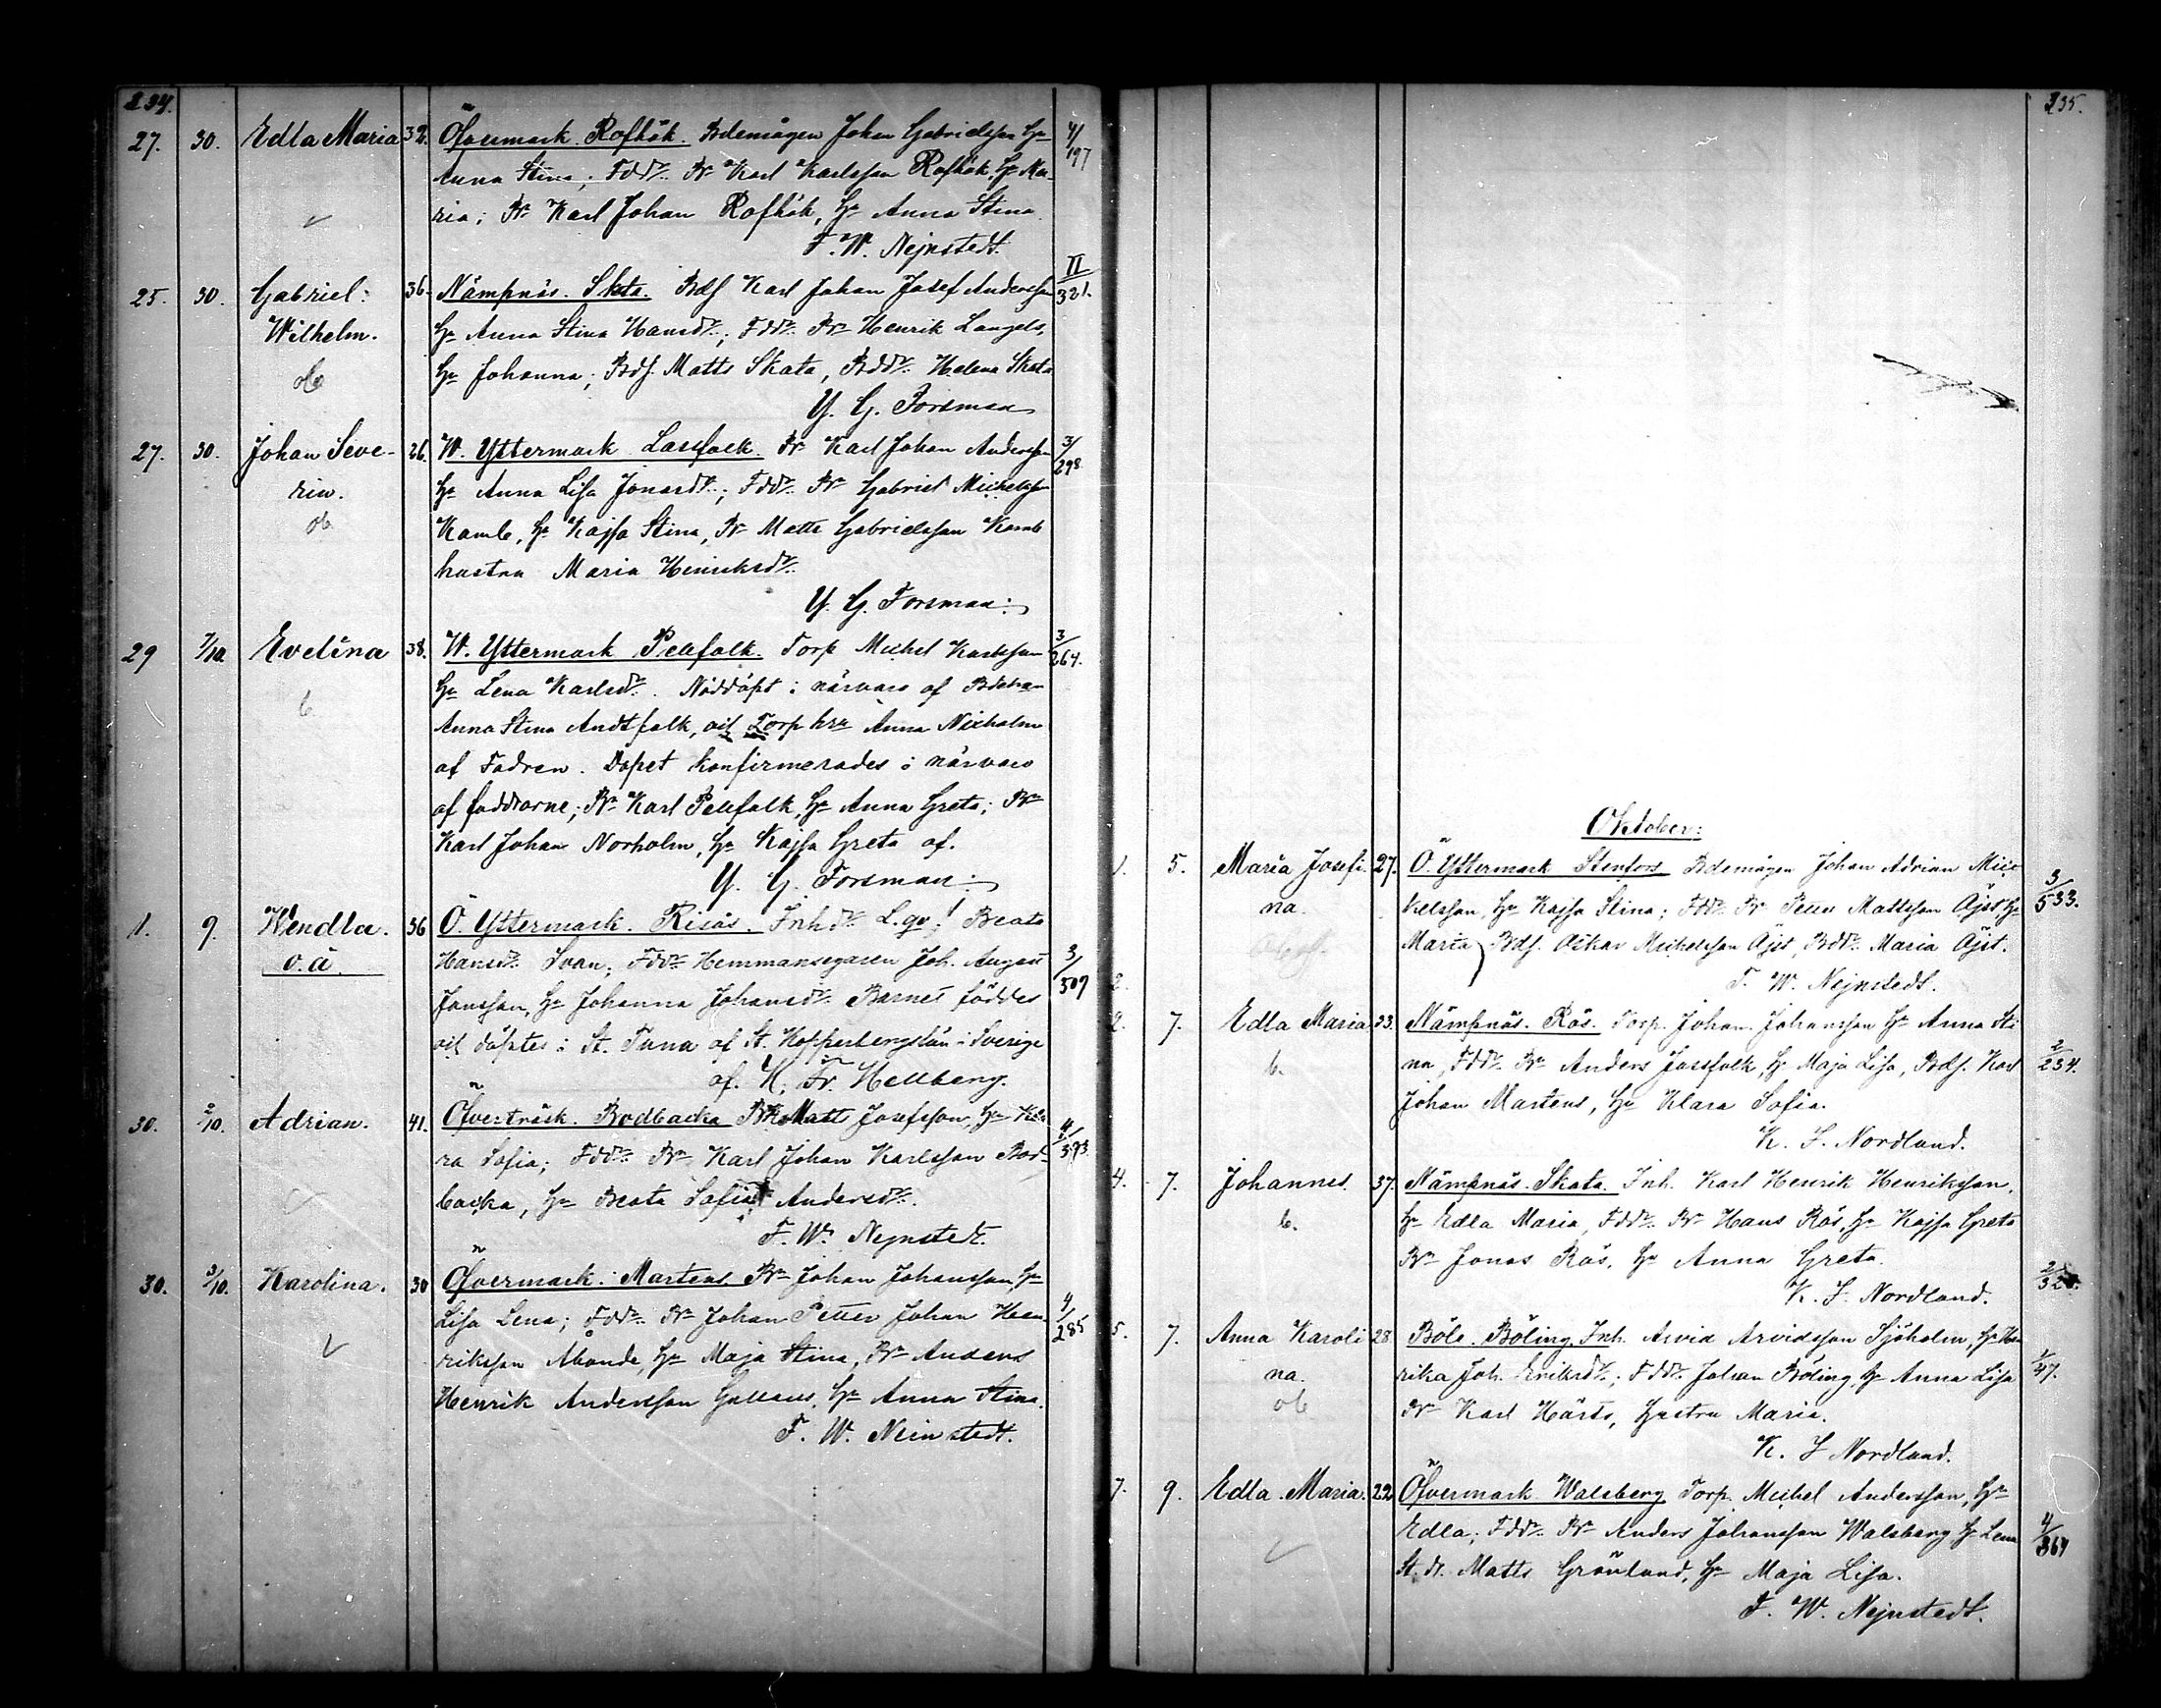 234.
27. 30. Edla Maria 32. Öfvermark. Rofkök. Bdemågen Johan Gabrielsson Hu 4/197
Anna Stina; Fddr. Br Karl Karlsson Rofkök, Hu Ma-
ria; Br Karl Johan Rofkök, Hu Anna Stina.
F. W. Nejnstedt.
25. 30. Gabriel 36. Nämpnäs. Skata. Bds Karl Johan Josef Andersson II/321.
Wilhelm. Hu Anna Stina Hansdr.; Fddr. Br Henrik Langels,
ob Hu Johanna; Bds. Matts Skata, Bddr. Helena Skata
Y. G. Forsman
27. 30. Johan Seve- 26. W. Yttermark Lassfolk. Br Karl Johan Andersson 3/298
rin. Hu Anna Lisa Jonasdr.; Fddr. Br Gabriel Michelsson
ob Kamb, Hu Kajsa Stina, Br Matts Gabrielsson Kamb
hustru Maria Henriksdr.
Y. G. Forsman.
29 7/10. Evelina 38. W. Yttermark Pellfolk. Torp Michel Karlsson 3/264.
b Hu Lena Karlsdr. Nöddöpt i närvaro af Bdehu
Anna Stina Andtfolk, och Torp hru Anna Nixholm
af Fadren. Dopet konfirmerades i närvaro
af faddrarne; Br Karl Pellfolk, Hu Anna Greta; Br
Karl Johan Norholm, Hu Kajsa Greta af.
Y. G. Forsman.
1. 9. Wendla. 36 Ö. Yttermark. Risås. Inhdr L.qv. Beata
o.ä. Hansdr. Svan; Fddr. Hemmansegaren Joh. August 3/309
Jansson, Hu Johanna Johansdr. Barnet föddes
och döptes i St. Tuna af St. Kopperbergslän i Sverige
af. K. Fr. Hellberg.
30. 2/10. Adrian. 41. Öfverträsk. Bodbacka Matts Josefsson, Hu Kla 4/393
ra Sofia; Fddr. Br Karl Johan Karlsson Bod-
backa, Hu Beata Sofia Andersdr.
F. W. Nejnstedt.
30. 3/10. Karolina. 30 Öfvermark. Martens Br Johan Johansson, Hu
Lisa Lena; Fddr. Br Johan Petter Johan Hen- 4/285
riksson Åbonde, Hu Maja Stina, Br Anders
Henrik Andersson Gullans, Hu Anna Stina.
F. W. Neinstedt.
235.
Oktober:
1. 5. Maria Josefi- 27. Ö. Yttermark Stenfors Bdemågen Johan Adrian Mic- 3/533.
na. kelsson, Hu Kajsa Stina; Fddr. Br Petter Mattsson Äjst, Hu
Maria Bds. Oskar Michelsson Äjst, Bddr. Maria Äjst.
2.
F. W. Nejnstedt.
2. 7. Edla Maria 33. Nämpnäs. Rös. Torp. Johan Johansson Hu Anna Sti
b. na, Fddr. Br Anders Jossfolk, Hu Maja Lisa, Bds. Karl 2/234.
Johan Martens, Hu Klara Sofia.
K. F. Nordlund.
4. 7. Johannes. 37. Nämpnäs. Skata. Inh. Karl Henrik Henriksson,
b. Hu Edla Maria, Fddr. Br Hans Rös, Hu Kajsa Greta
Br Jonas Rös, Hu Anna Greta.
K. F. Nordlund.
5. 7. Anna Karoli 28 Böle. Böling. Inh. Arvid Arvidsson Sjöholm, Hu Hen
na. rika Joh. Eriksdr.; Fddr. Johan Böling, Hu Anna Lisa 1/47.
ob Br Karl Härts, Hustru Maria.
K. F Nordlund.
7. 9. Edla Maria. 22 Öfvermark Walsberg Torp. Michel Andersson, Hu
Edla; Fddr. Br Anders Johansson Walsberg Hu Lena 4/364
St. dr. Matts Grönlund, Hu Maja Lisa.
F. W. Nejnstedt.